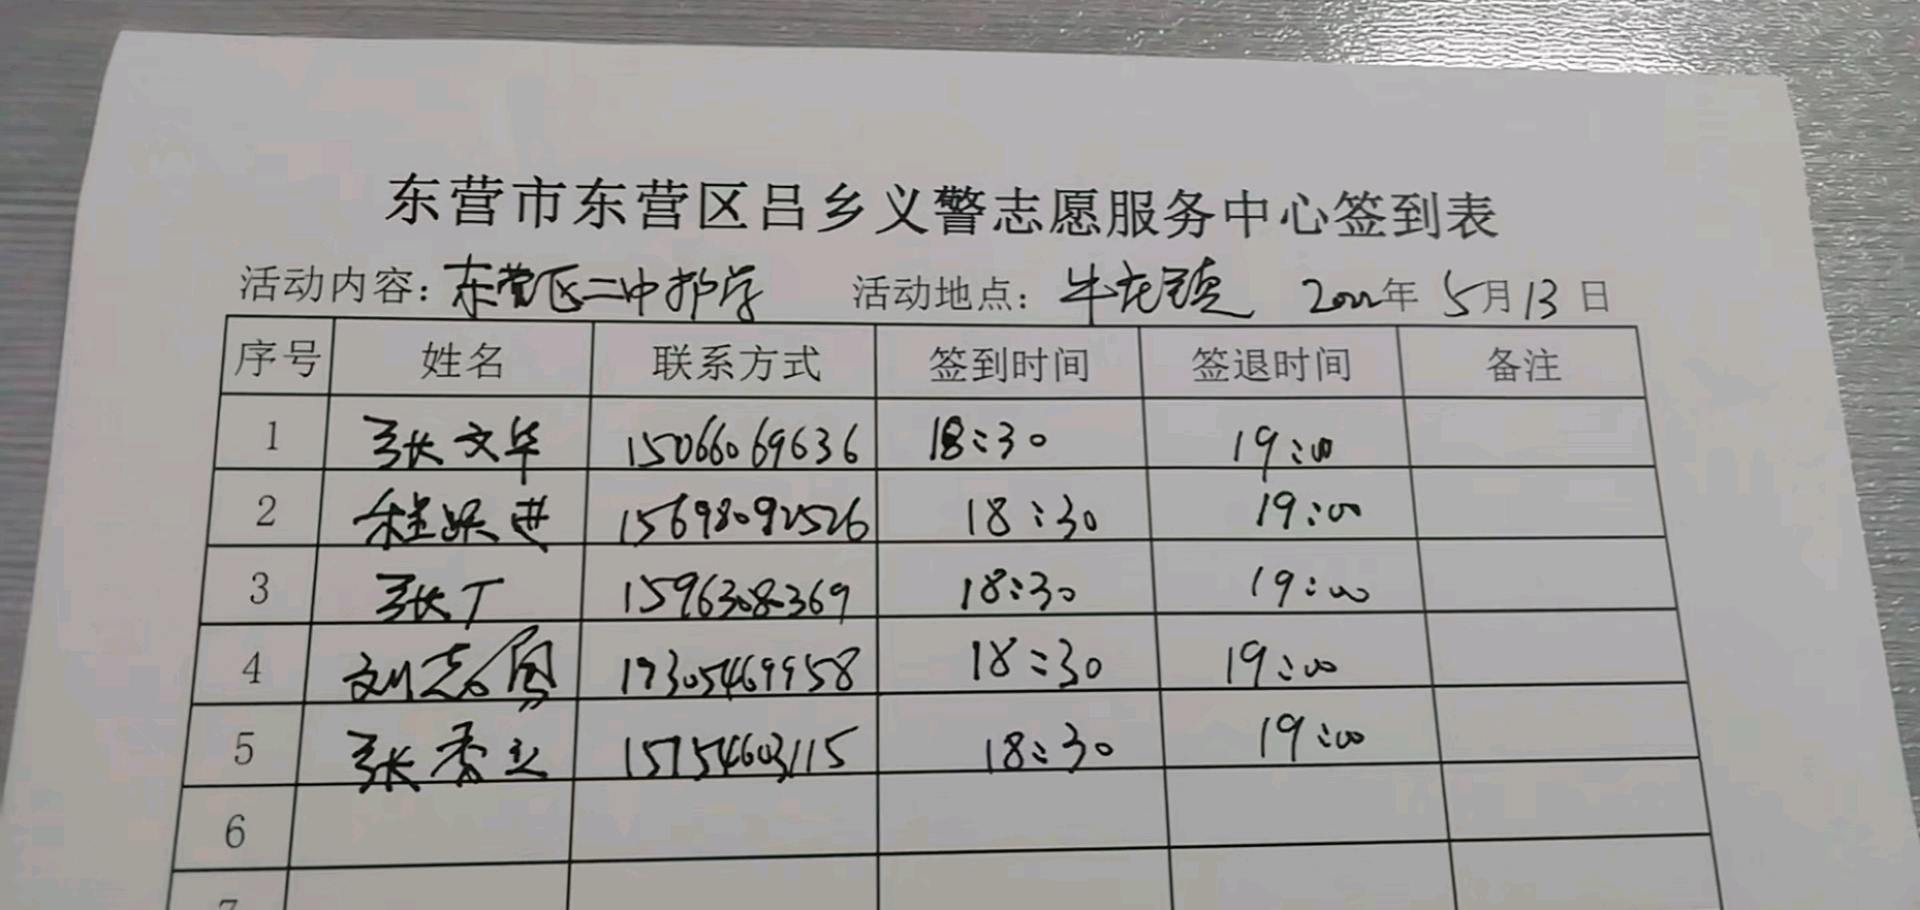 东营市东营区吕乡义警志愿服务中心签到表
活动内容：东营区二中护学 活动地点：牛庄镇 2022年 5月13日
序号 姓名 联系方式 签到时间 签退时间 备注
1 张文华 15066069636 18:30 19:00
2 程跃进 15698092526 18:30 19:00
3 张丁 18:30 19:00
4 刘志国 18:30 19:00
5 张秀 18:30 19:00
6
7